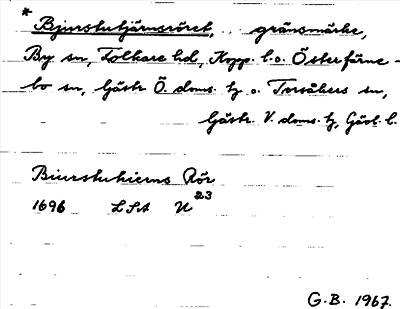 * Bjurstutjärnsröret, gränsmärke,
By sn, Folkare hd, Kopp. l. o. Österfärne-
bo sn, Gästr. Ö. doms. tg o. Torsåkers sn,
Gästr. V. doms. tg, Gävl. l.
Biurstukierns Rör
1696 LSA U 23
G.B. 1967.